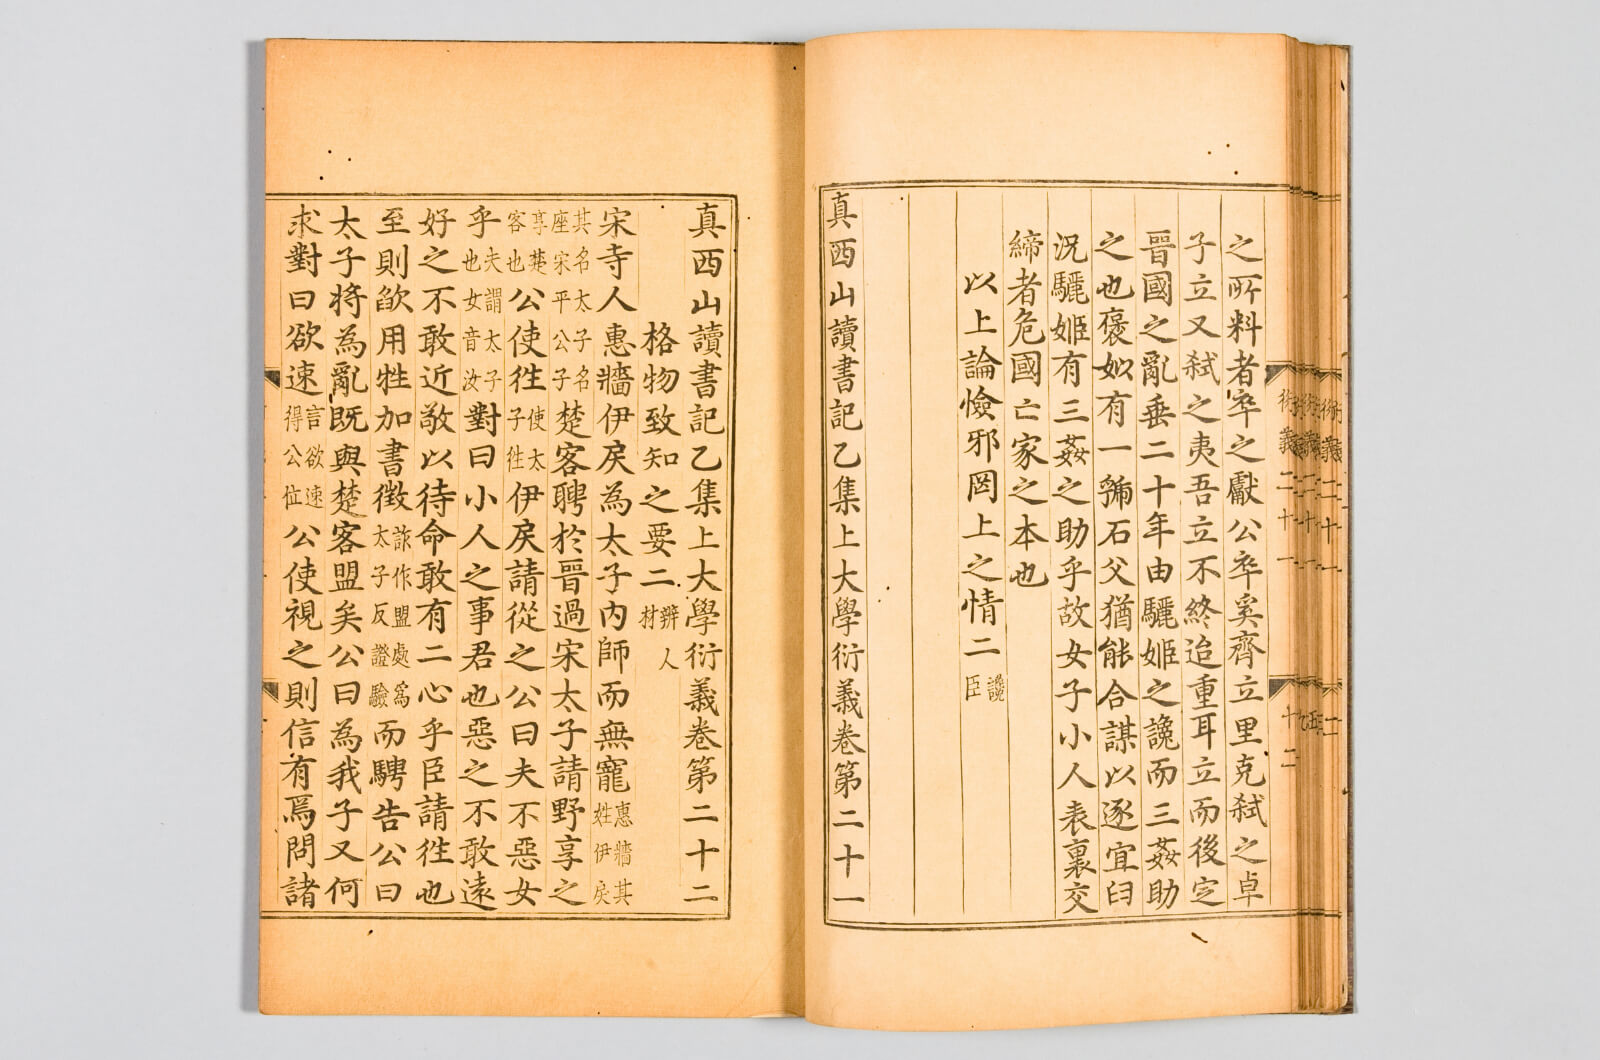 之所料者卒之獻公卒奚齊立里克弑之卓
子立又弑之夷吾立不終迨重耳立而後定
晉國之亂垂二十年由驪姬之讒而三姦助
之也褒姒有一虢石父猶能合謀以逐宜臼
況驪姬有三姦之助乎故女子小人表裏交
締者危國亡家之本也
以上論憸邪罔上之情二讒臣
真西山讀書記乙集上大學衍義卷第二十一
真西山讀書記乙集上大學衍義卷第二十二
格物致知之要二辨人材
宋寺人惠牆伊戾為太子內師而無寵惠牆其姓伊戾
其名太子名座宋平公子楚客聘於晉過宋太子請野享之
享楚客也公使往使太子往伊戾請從之公曰夫不惡女
乎夫謂太子也女音汝對曰小人之事君也惡之不敢遠
好之不敢近敬以待命敢有二心乎臣請往也
至則欿用牲加書徵詐作盟處為太子反證驗而騁告公曰
太子將為亂既與楚客盟矣公曰為我子又何
求對曰欲速言欲速得公位公使視之則信有焉問諸
衍義二十一
十二